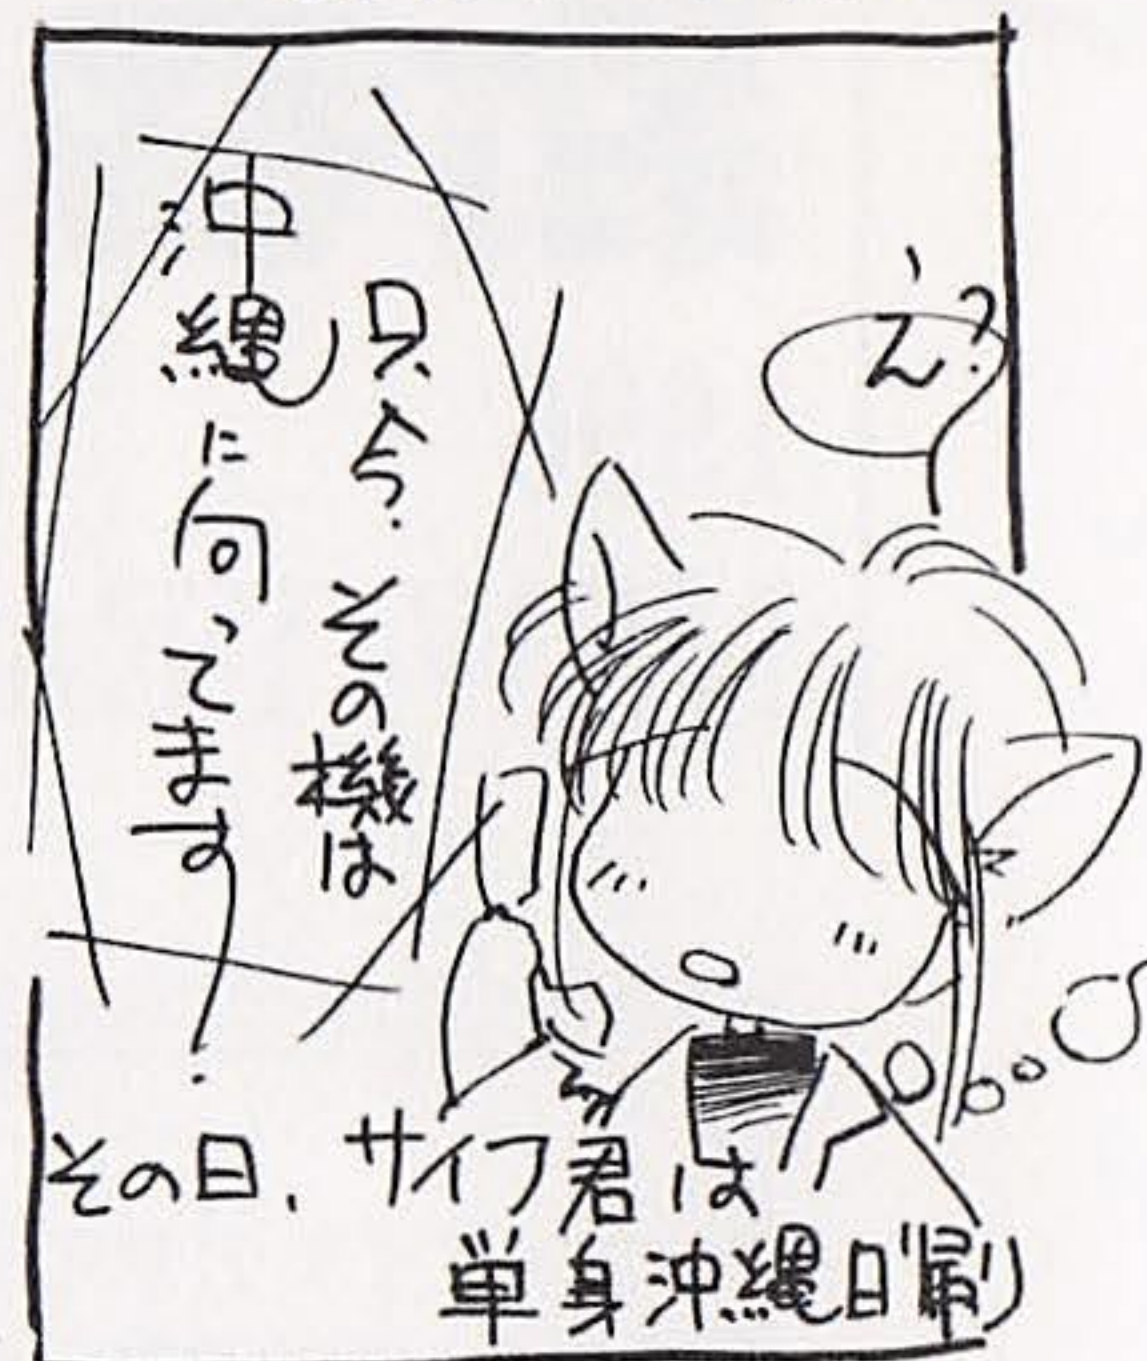 え?
只今、その機は
沖縄に向ってます
その日、サイフ君は
単身沖縄日帰り